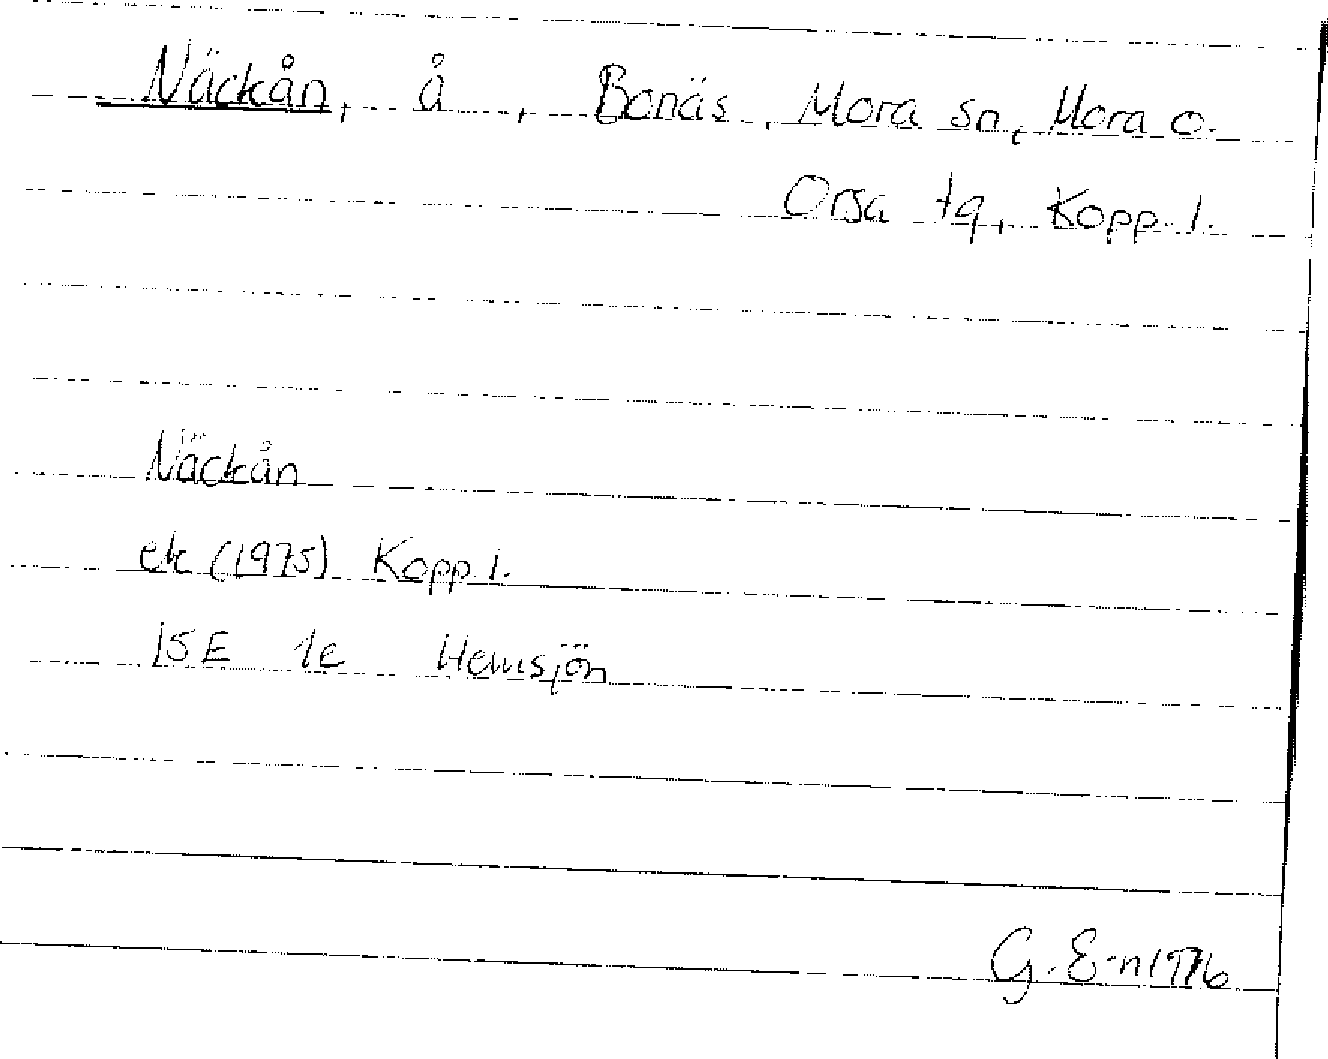 Näckån, å, Bonäs, Mora sn, Mora o.
Orsa tg, Kopp. l.
Näckån
ek (1975) Kopp l.
15E 1e Hemsjön
G. E-n 1976